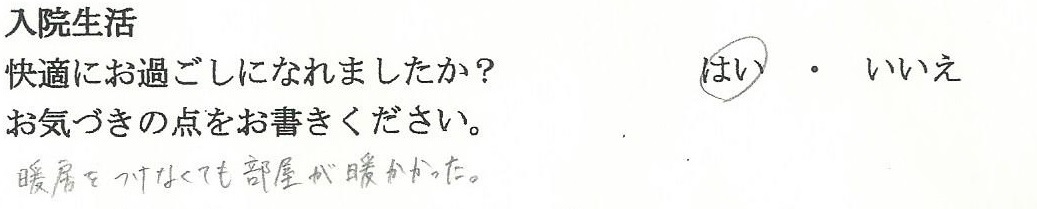 入院生活
快適にお過ごしになれましたか? はい ・ いいえ
お気づきの点をお書きください。
暖房をつけなくても部屋が暖かかった。